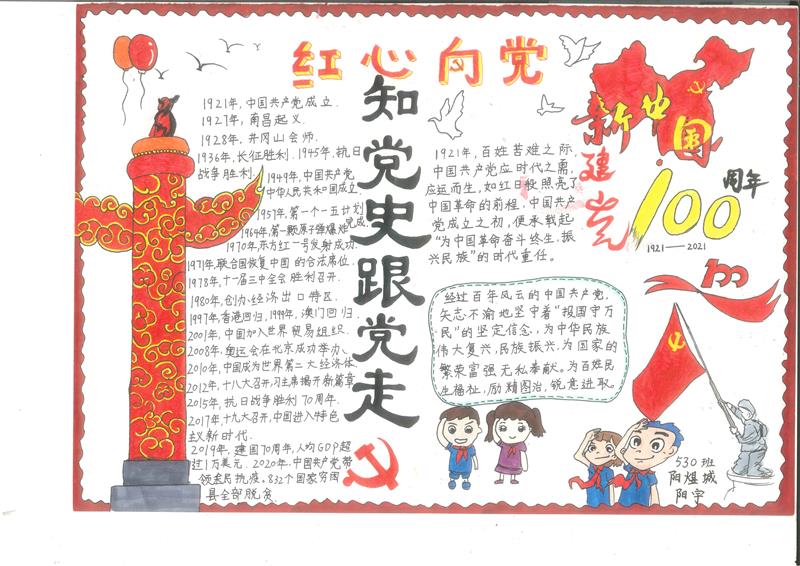 红心向党
知党史跟党走
1921年,中国共产党成立.
1927年,南昌起义.
1928年,井冈山会师.
1936年,长征胜利.1945年,抗日
战争胜利.
1949年,中国共产党
中华人民共和国成立.
1957年,第一个一五计划
完成
1964年,第一颗原子弹爆炸
1970年,东方红一号发射成功.
1971年,联合国恢复中国的合法席位.
1978年,十一届三中全会胜利召开.
1980年,创办经济出口特区.
1997年,香港回归,1999年,澳门回归.
2001年,中国加入世界贸易组织.
2008年,奥运会在北京成功举办.
2010年,中国成为世界第二大经济体.
2012年,十八大召开,习主席揭开新篇章
2015年,抗日战争胜利70周年.
2017年,十九大召开,中国进入特色
主义新时代.
2019年,建国70周年,人均GDP超
过1万美元.2020年,中国共产党带
领全民抗疫.832个国家穷困
县全部脱贫.
1921年,百姓苦难之际,
中国共产党应时代之需,
应运而生,如红日般照亮了
中国革命的前程.中国共产
党成立之初,便承载起
“为中国革命奋斗终生,振
兴民族”的时代重任。
新中国
建党
100
周年
1921——2021
100
经过百年风云的中国共产党,
矢志不渝地坚守着“报国守万
民”的坚定信念,为中华民族
伟大复兴,民族振兴,为国家的
繁荣富强无私奉献。为百姓民
生福祉,励精图治,锐意进取。
530班
阳煜城
阳宇